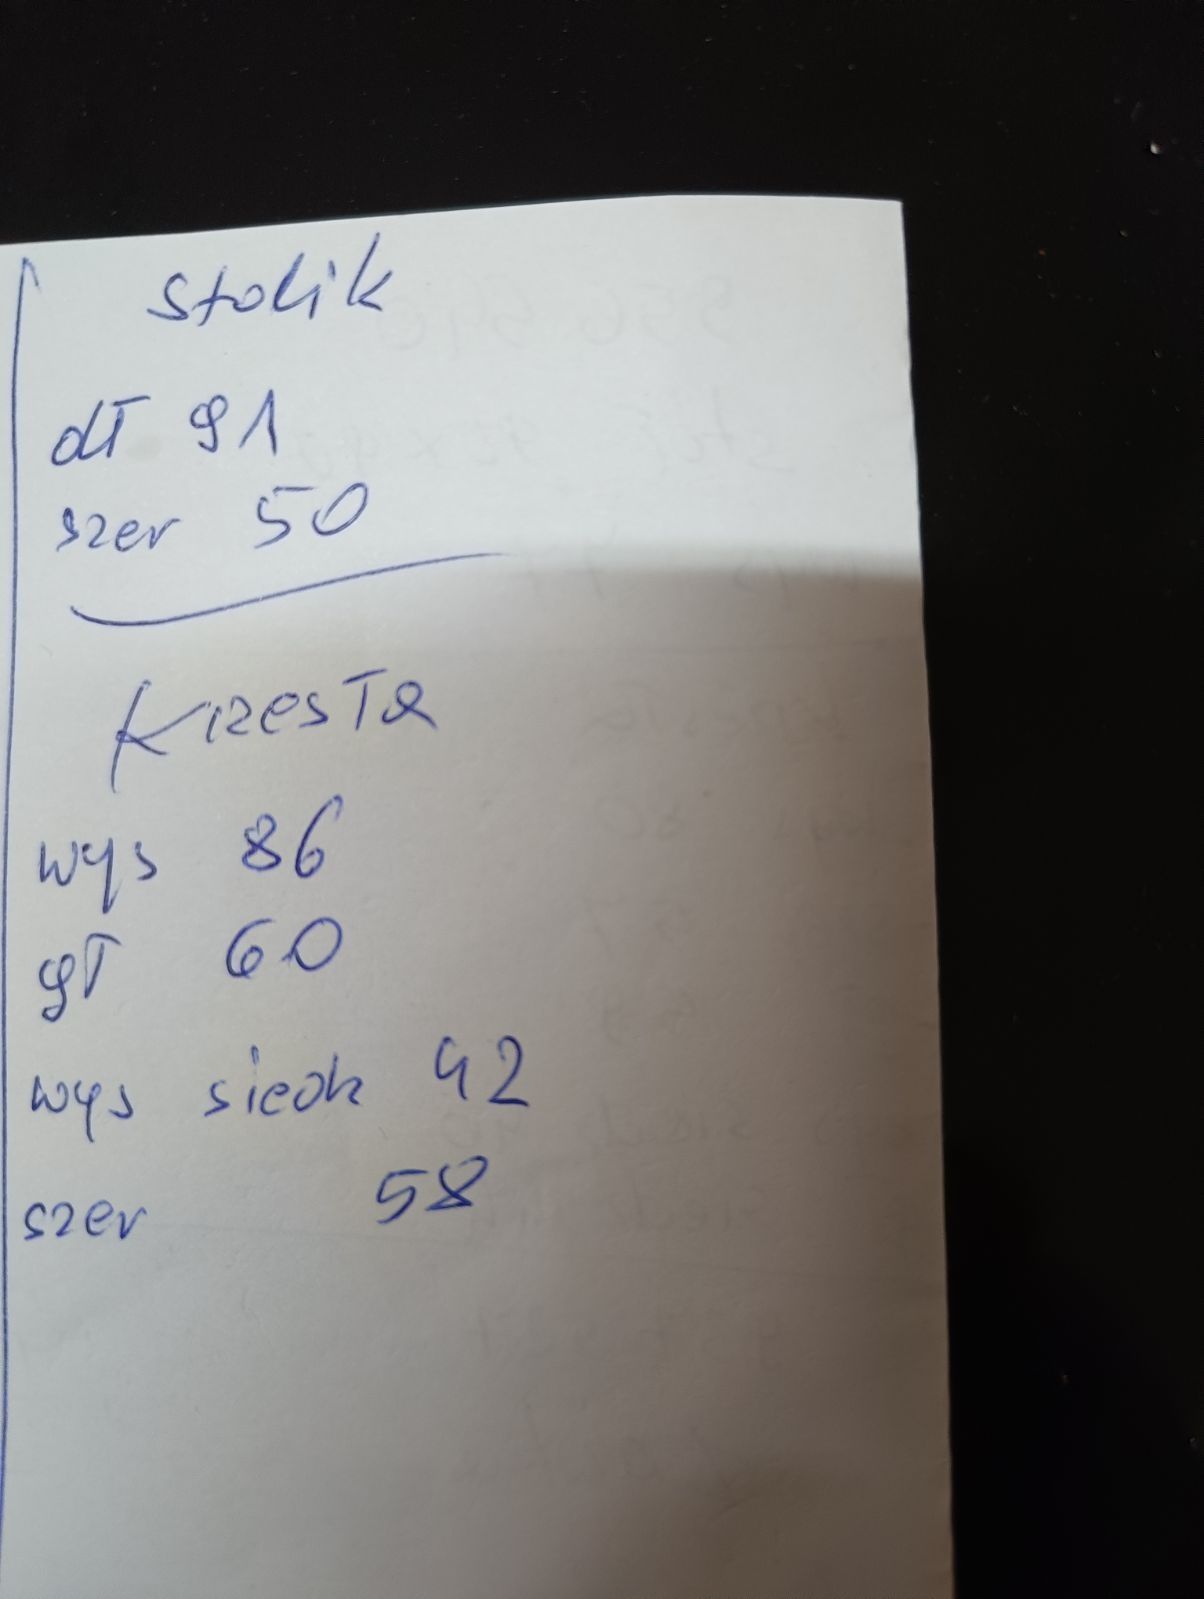 stolik
dł 91
szer 50
Krzesła
wys 86
gł 60
wys siedz 42
szer 58